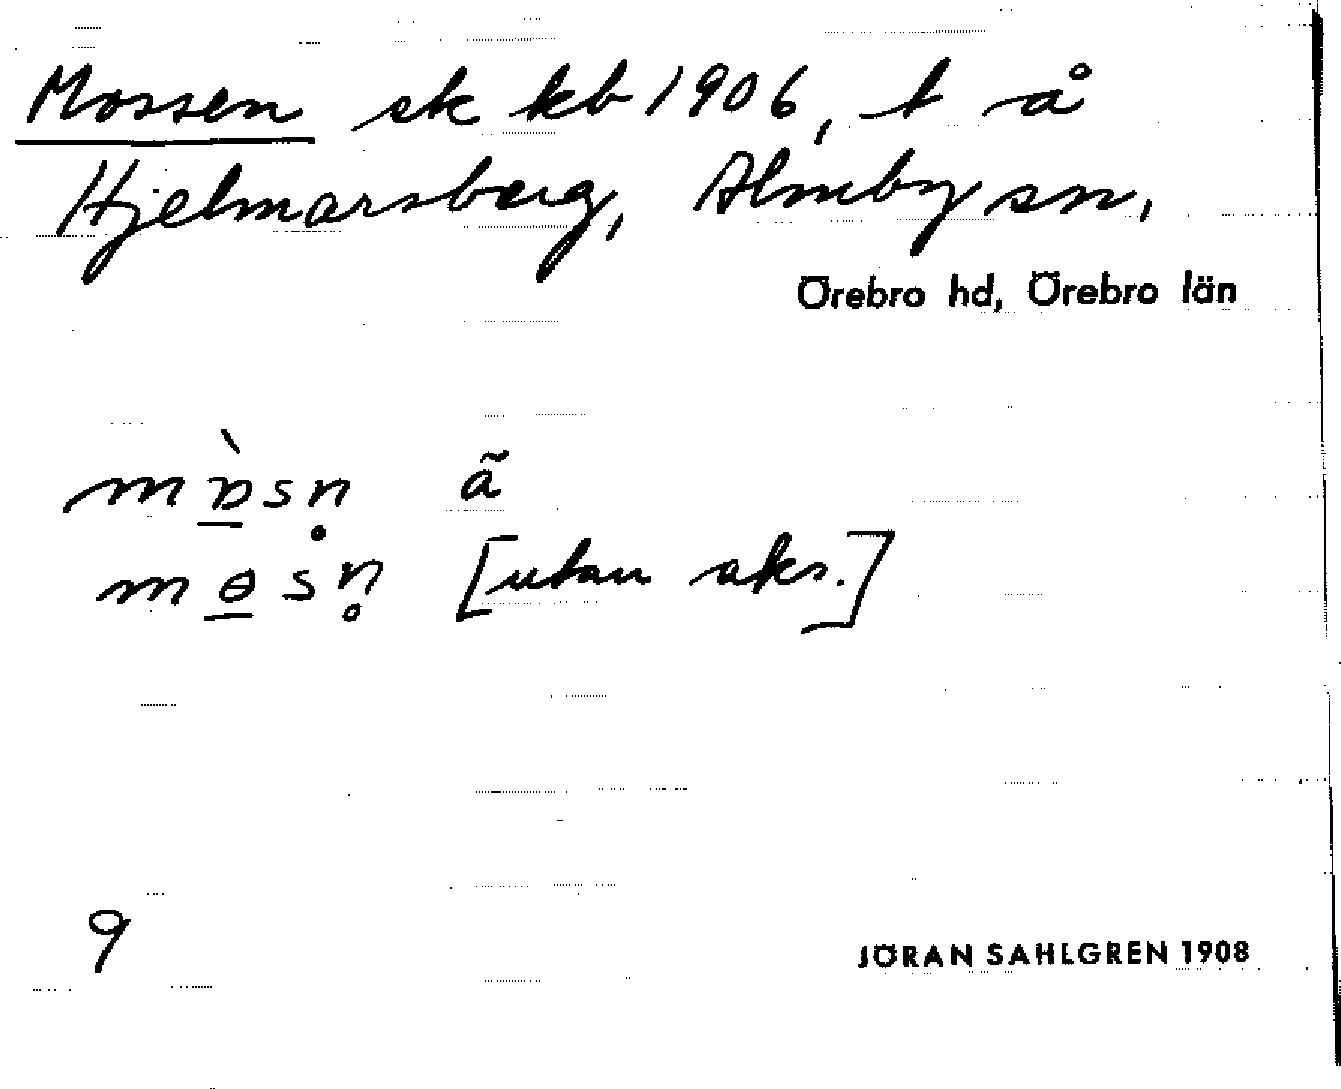 Mossen sk kb 1906, t å
Hjelmarsberg, Almby sn,
Örebro hd, Örebro län
mɒ̠̀sn̥ ã
mɵ̠sn̥ [utan aks.]
9
JÖRAN SAHLGREN 1908